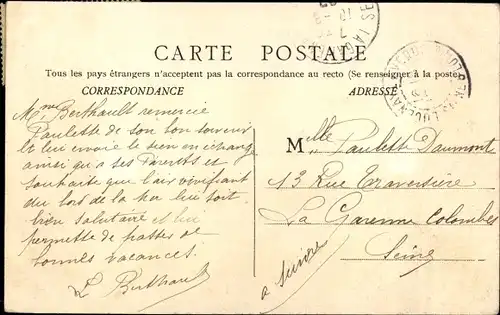 CARTE POSTALE
Tous les pays étrangers n'acceptent pas la correspondance au recto (Se renseigner à la poste
CORRESPONDANCE
ADRESSE
Mme Berthault remercie
Paulette de son bon souvenir
et lui envoie le sien en échange
ainsi qu'a ses Parents et
souhaite que l'air vivifiant
du bord de la mer lui soit
bien salutaire et lui
permette de passer de
bonnes vacances.
L Berthault
Melle Paulette Daumont
13 Rue Traversière
La Garenne Colombes
Seine
a suivre